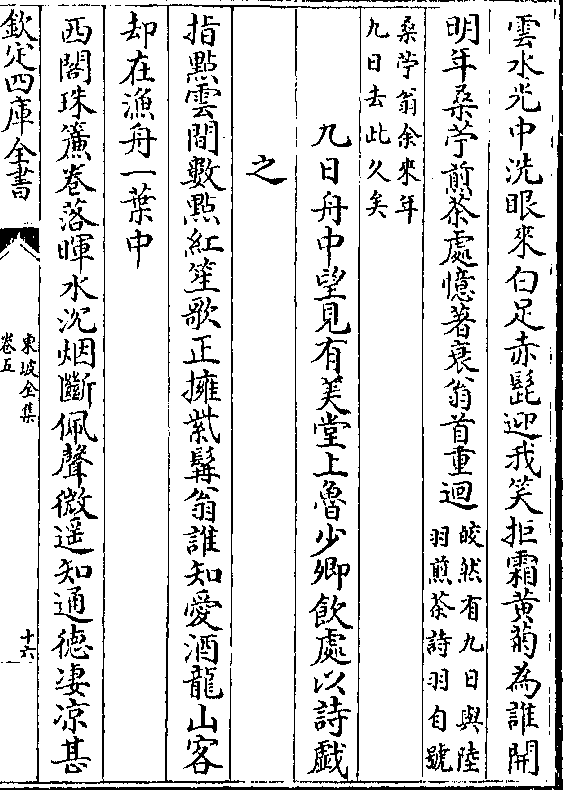 雲水光中洗眼來白足赤髭迎我笑拒霜黄菊為誰開
明年桑苧煎茶處憶著衰翁首重迴
皎然有九日與陸
羽煎茶詩羽自號
桑苧翁余來年
九日去此久矣
九日舟中望見有美堂上魯少卿飲處以詩戲
之
指點雲間數點紅笙歌正擁紫髯翁誰知愛酒龍山客
却在漁舟一葉中
西閣珠簾卷落暉水沉烟斷佩聲微遥知通徳凄凉甚
欽定四庫全書
東坡全集
卷五
十六